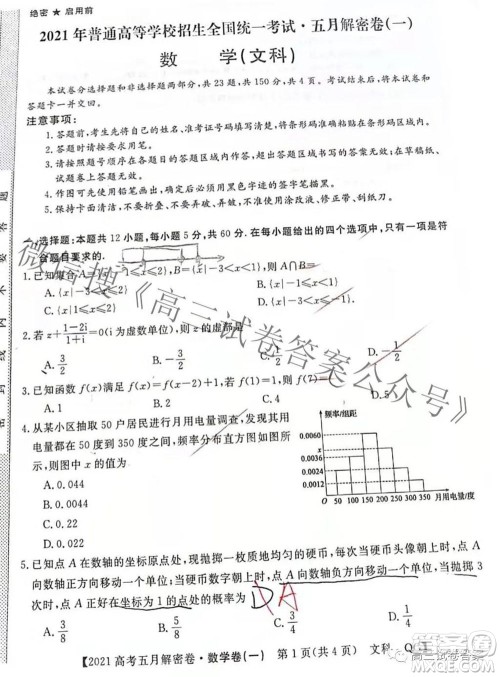 绝密★启用前
2021年普通高等学校招生全国统一考试·五月解密卷(一)
数 学(文科)
本试卷分选择题和非选择题两部分,共23题,共150分,共4页。考试结束后,将本试卷和
答题卡一并交回。
注意事项:
1.答题前,考生先将自己的姓名、准考证号码填写清楚,将条形码准确粘贴在条形码区域内。
3.请按照题号顺序在各题目的答题区域内作答,超出答题区域书写的答案无效;在草稿纸、
试卷上答题无效。
4.作图可先使用铅笔画出,确定后必须用黑色字迹的签字笔描黑。
5.保持卡面清洁,不要折叠,不要弄破、弄皱,不准使用涂改液、修正带、刮纸刀。
一、选择题:本题共12小题,每小题5分,共60分.在每小题给出的四个选项中,只有一项是符
合题目要求的.
1.已知集合A={x|1≤x≤2},B={x|-3<x<1},则A∩B=
A.{x|-3<x≤2}
C.{x|1≤x≤2}
D.
2.若z+\frac{1-2i}{1+i}=0(i为虚数单位),则z的虚部是
A.\frac{3}{2}
B.-\frac{3}{2}
C.\frac{3}{2}
D.-\frac{1}{2}
3.已知函数f(x)满足f(x)=f(x-2)+1,若f(1)=1,则f(7)=
A.1
B.2
D.5
4.从某小区抽取50户居民进行月用电量调查,发现其用
电量都在50度到350度之间,频率分布直方图如图所
示,则图中x的值为
A.0.0044
B.0.044
C.0.0022
D.0.22
频率/组距
0.0060
0.0036
0.0024
0.0012
0 50 100 150 200 250 300 350 月用电量/度
5.已知点A在数轴的坐标原点处,现抛掷一枚质地均匀的硬币,每次当硬币头像朝上时,点A
向数轴正方向移动一个单位;当硬币数字朝上时,点A向数轴负方向移动一个单位,当抛掷3
次时,点A正好在坐标为1的点处的概率为
D A
A.\frac{3}{8}
B.\frac{5}{8}
C.\frac{3}{4}
【2021高考五月解密卷·数学卷(一) 第1页(共4页) 文科
微信搜《高三试卷答案公众号》
高三试卷答案